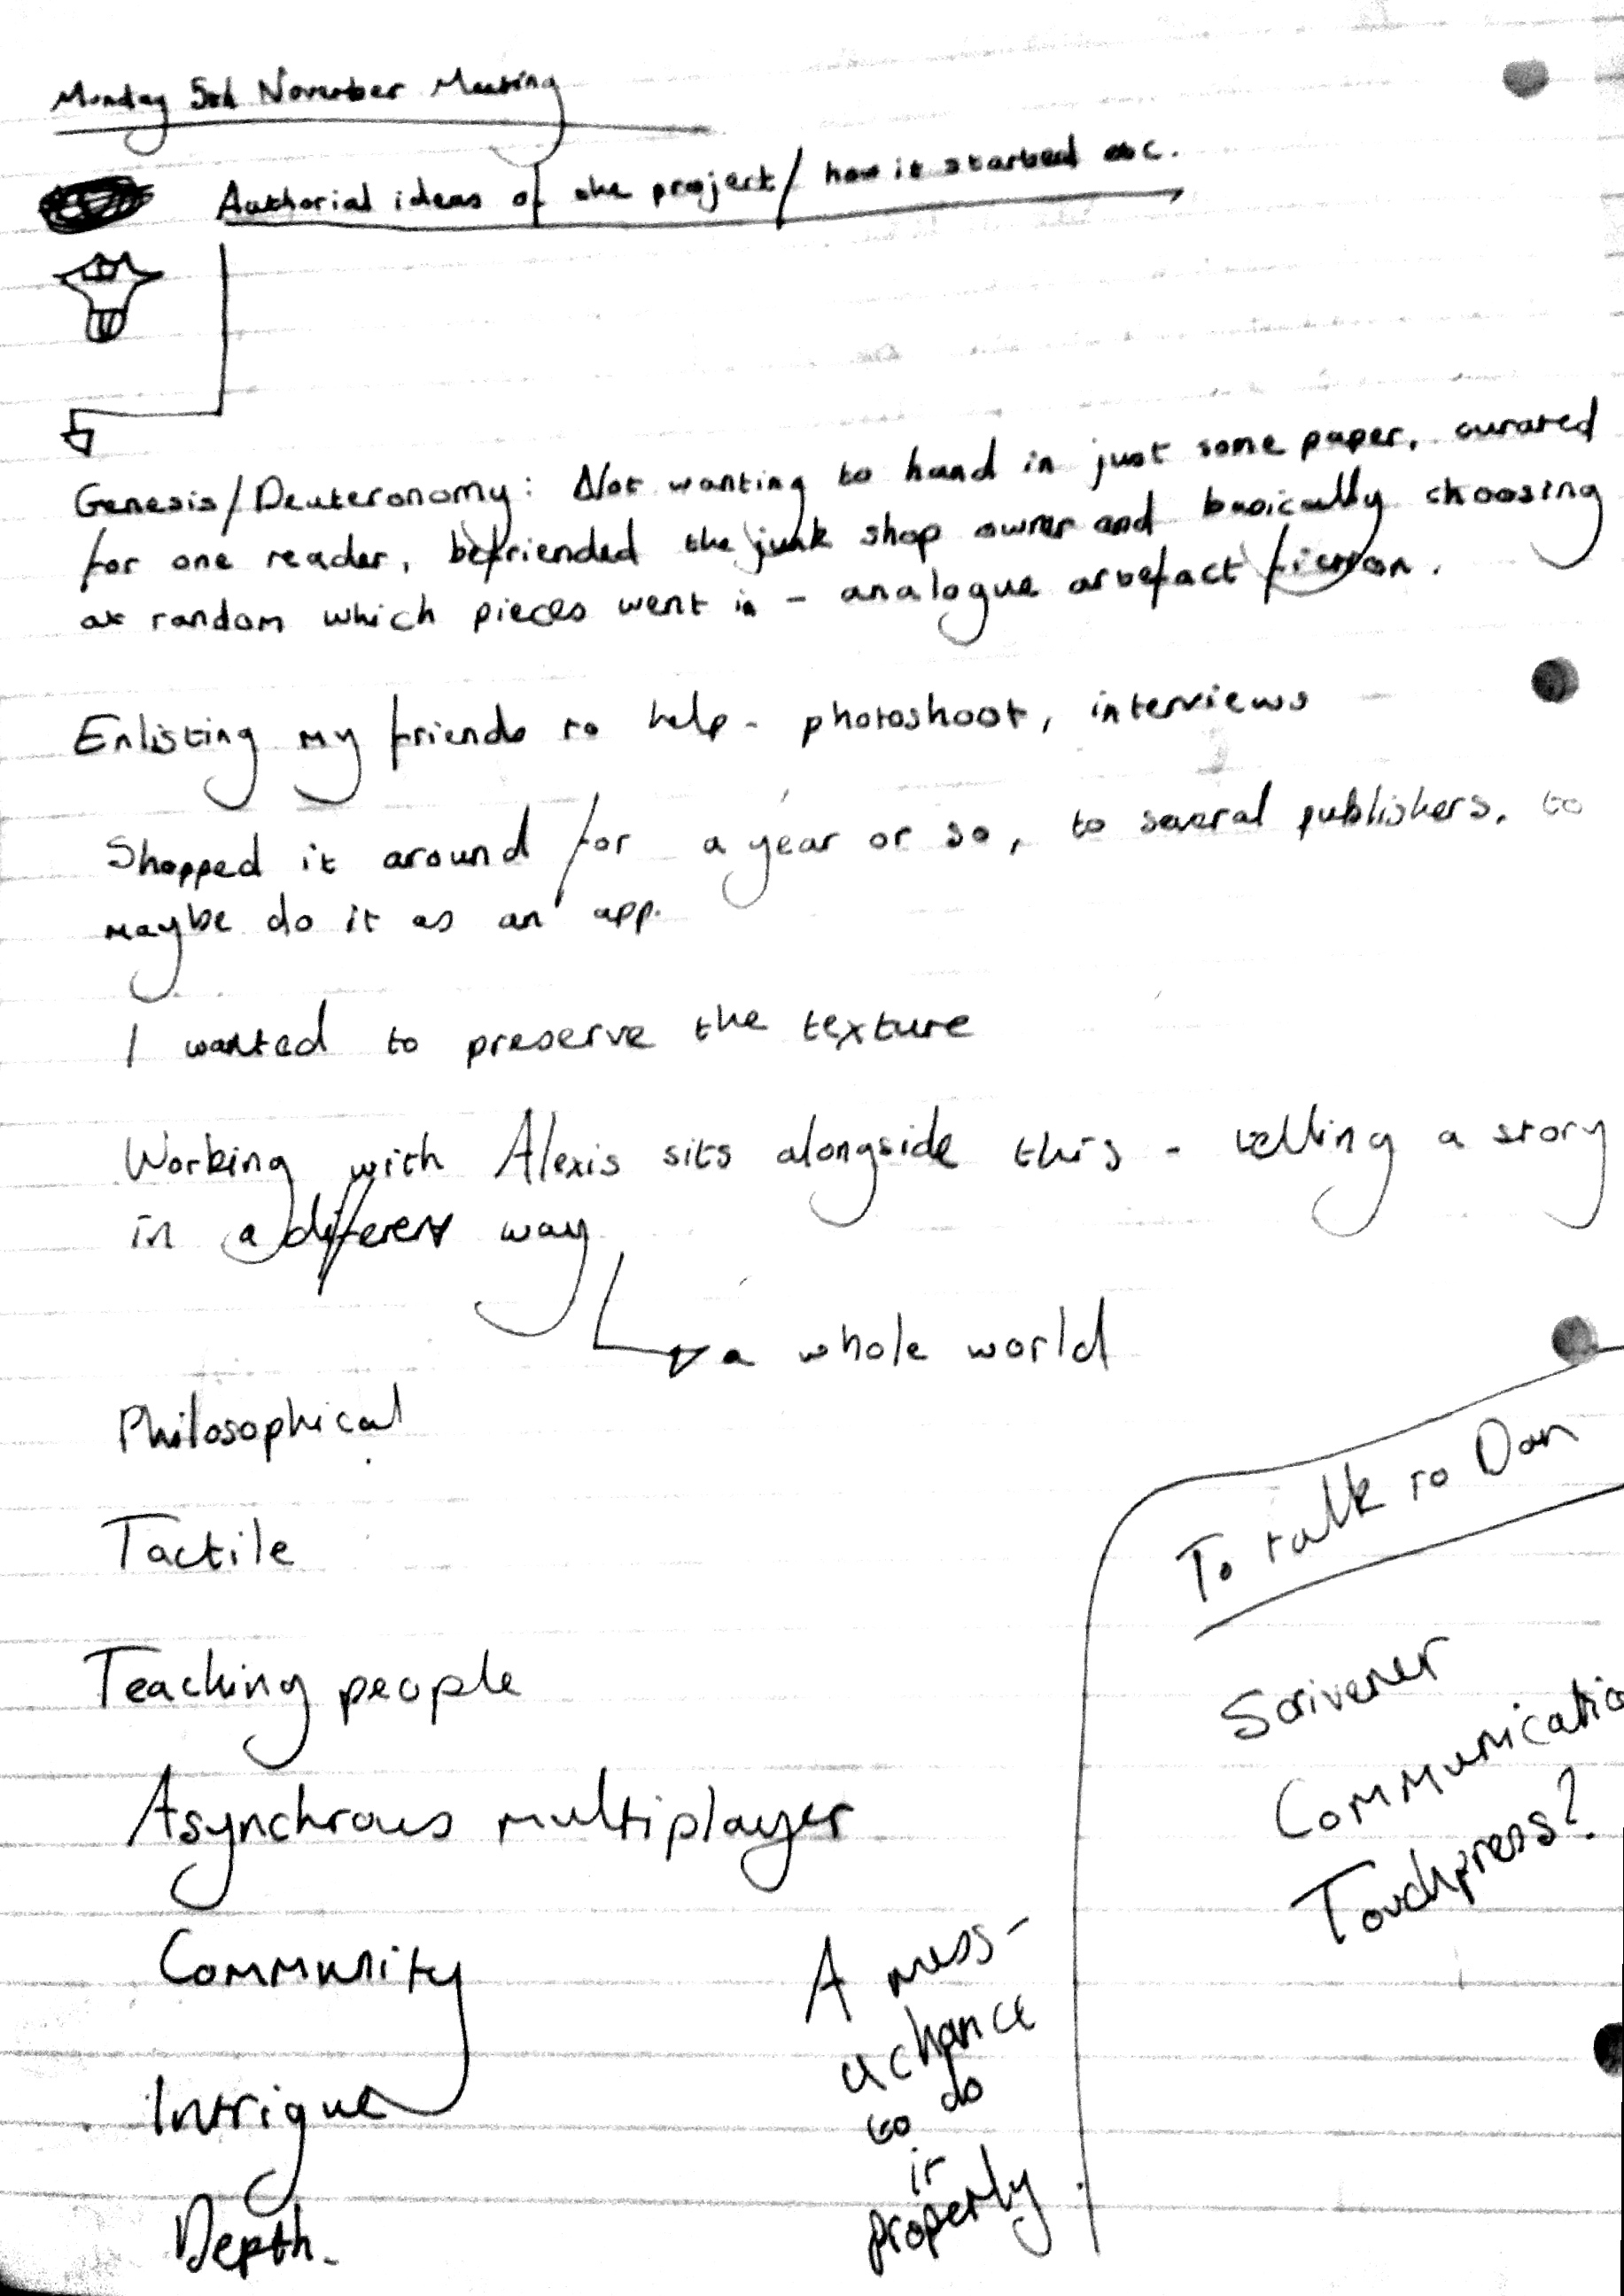 Monday 5th November Meeting
Authorial ideas of the project/ how it started etc.
Genesis/Deuteronomy: Not wanting to hand in just some paper, curated
for one reader, befriended the junk shop owner and basically choosing
at random which pieces went in - analogue artefact fiction.
Enlisting my friends to help - photoshoot, interviews
Shopped it around for a year or so, to several publishers, to
maybe do it as an app.
I wanted to preserve the texture
Working with Alexis sits alongside this - telling a story
in a different way
a whole world
Philosophical
Tactile
Teaching people
Asynchrous multiplayer
Community
Intrigue
Depth.
A mess -
a chance
to do
it
properly.
To talk to Dan
Scrivener
Communicatio
Touchpress?